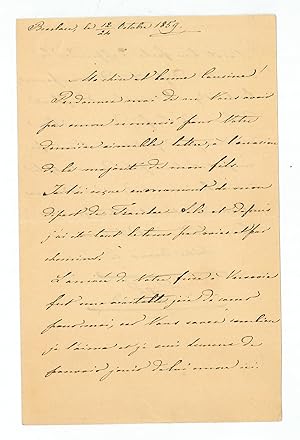 Breslau, le 12/24 Octobre 1869.
Ma chère et bonne Cousine!
Pardonnez moi de ne Vous avoir
pas encore remercié pour Votre
dernière aimable lettre, à l'occasion
de la majorité de mon fils.
Je l'ai reçue au moment de mon
départ de Tsarskoe Selo et depuis
j'ai été tout le temps par voies et par
chemins.
L'arrivée de Votre frère à Varsovie
fut une véritable joie de coeur
pour moi, car Vous savez combien
je l'aime et je suis heureux de
pouvoir jouir de lui encore ici.